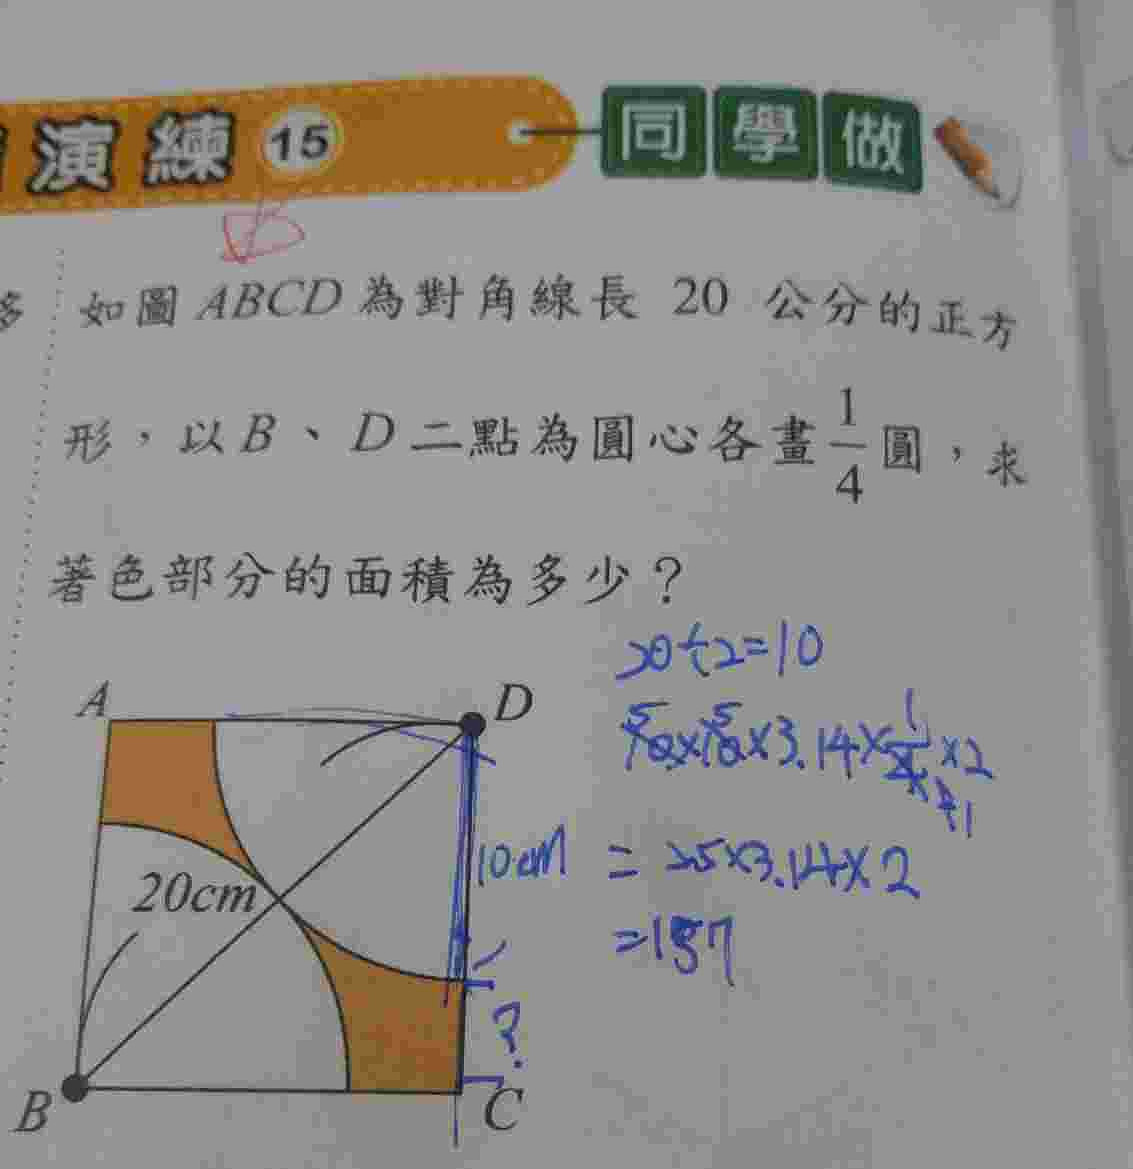 演練 15 同學做
多
如圖 ABCD 為對角線長 20 公分的正方
形，以 B、D 二點為圓心各畫 1/4 圓，求
著色部分的面積為多少？
20÷2=10
10×10×3.14×1/4×2
5 5 1
1
=25×3.14×2
=157
A
D
20cm
10cm
?
B
C